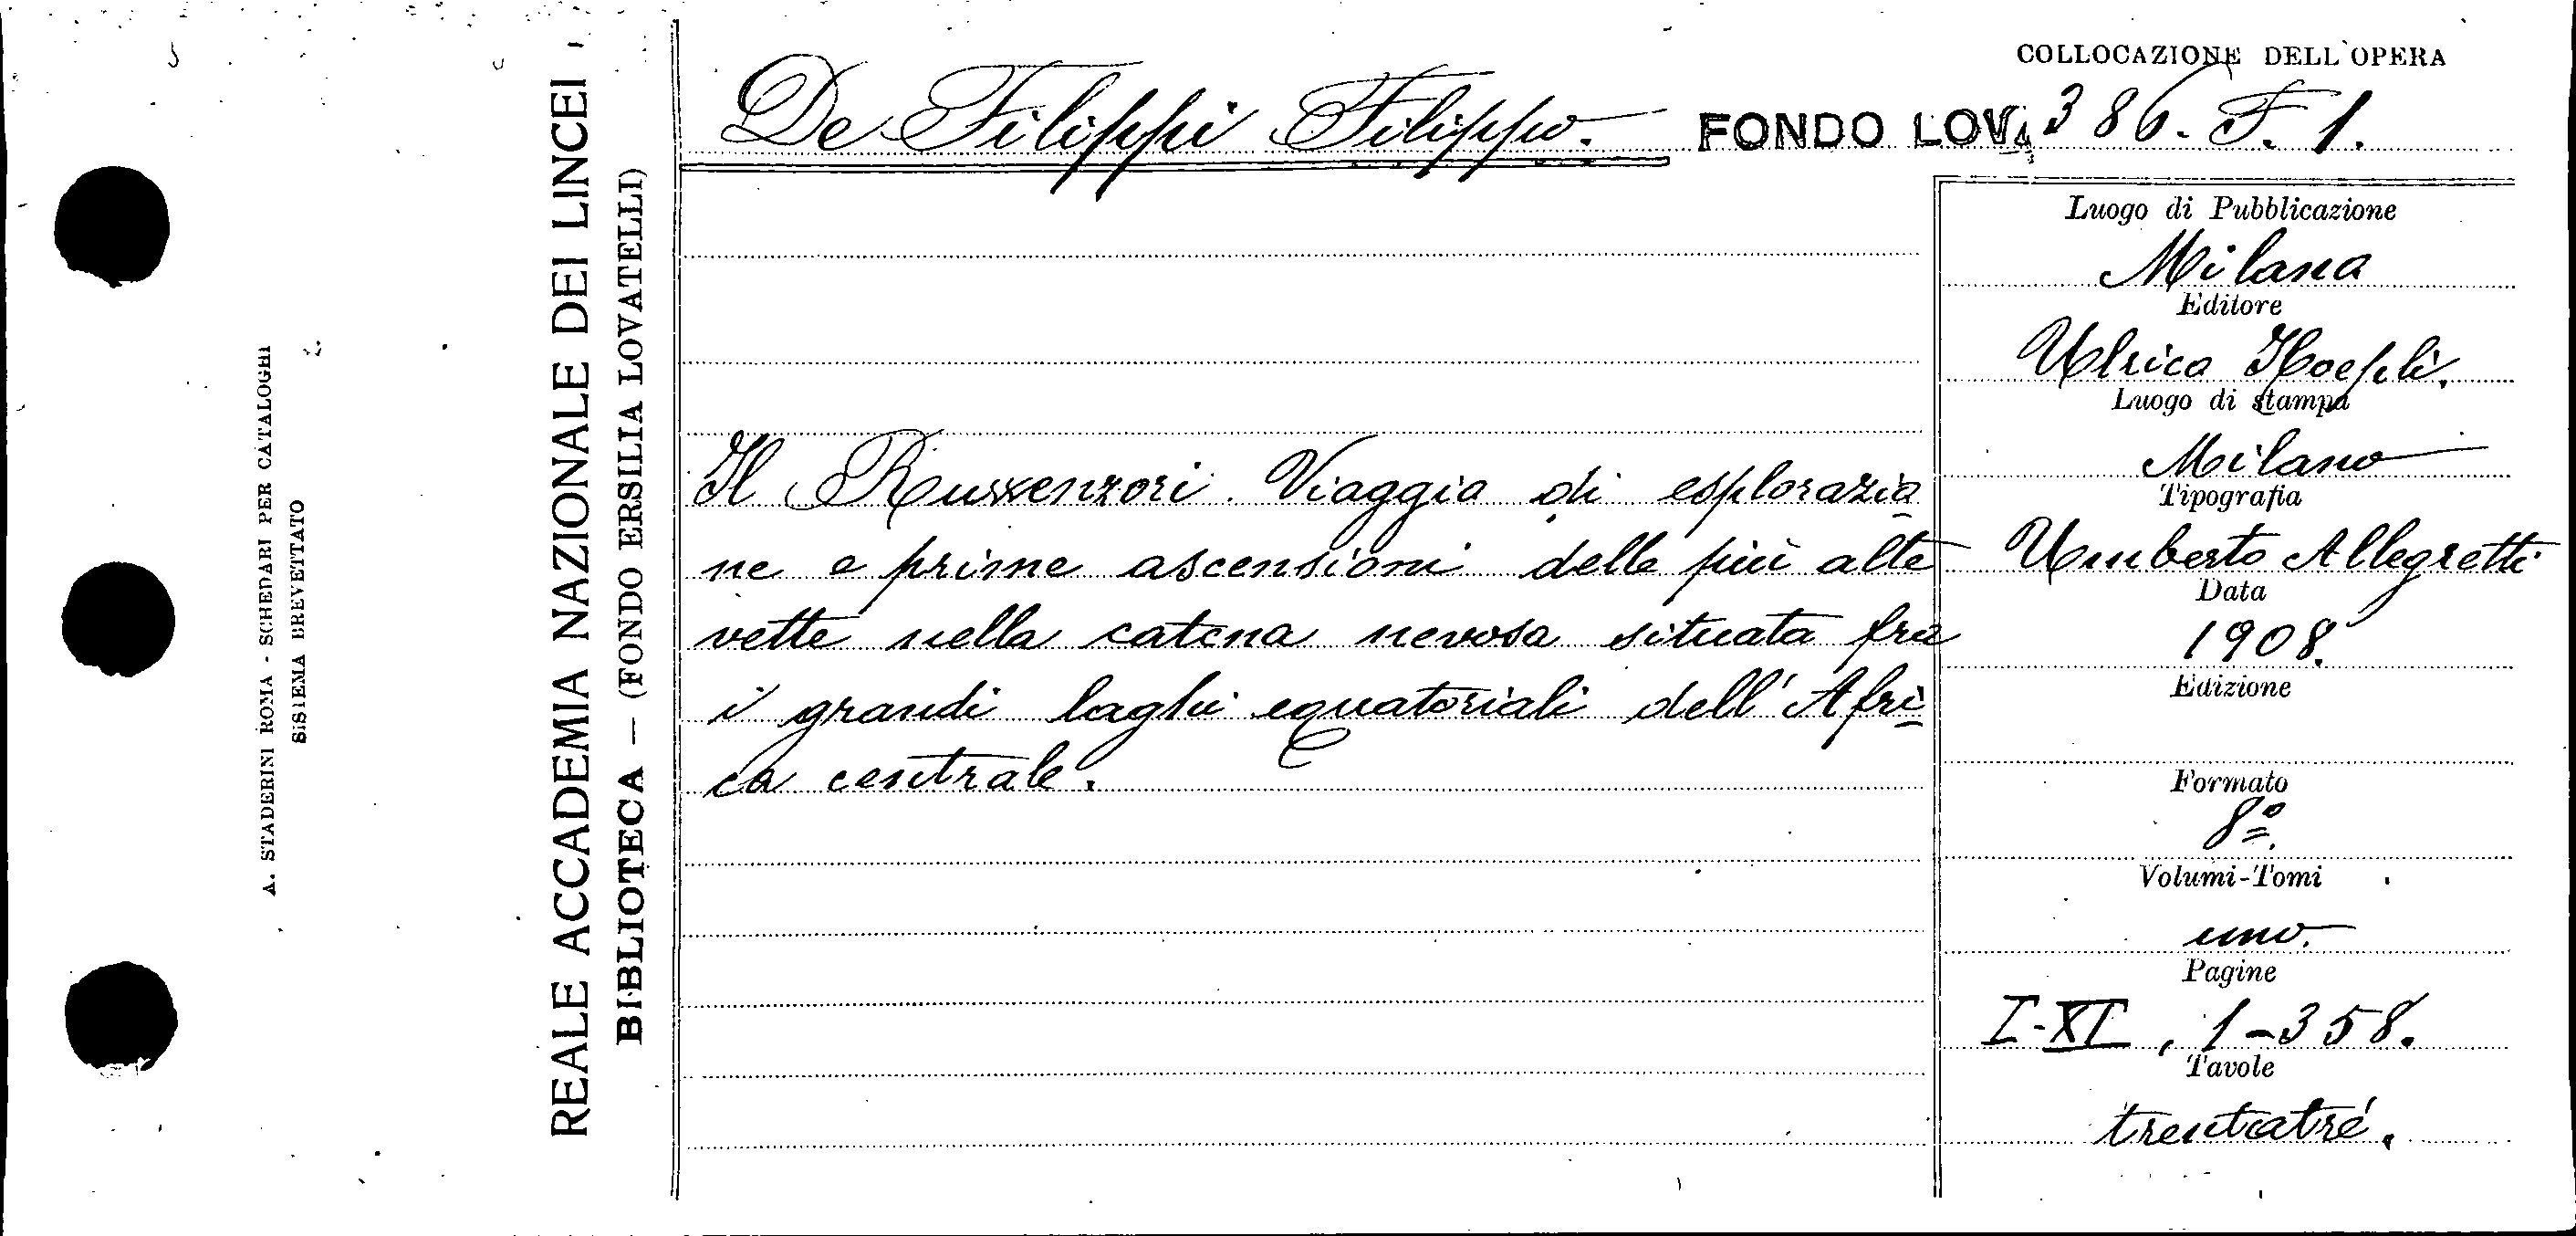 A. STADERINI ROMA - SCHEDARI PER CATALOGHI
SISTEMA BREVETTATO
REALE ACCADEMIA NAZIONALE DEI LINCEI
BIBLIOTECA — (FONDO ERSILIA LOVATELLI)
COLLOCAZIONE DELL'OPERA
De Filippi Filippo. FONDO LOV. 386. F. 1.
Il Ruwenzori. Viaggio di esplorazio
ne e prime ascensioni delle più alte
vette nella catena nevosa situata fra
i grandi laghi equatoriali dell'Afri
ca centrale.
Luogo di Pubblicazione
Milano
Editore
Ulrico Hoepli.
Luogo di stampa
Milano
Tipografia
Umberto Allegretti
Data
1908.
Edizione
Formato
8º.
Volumi-Tomi
uno.
Pagine
I-XI, 1-358.
Tavole
trentatré.